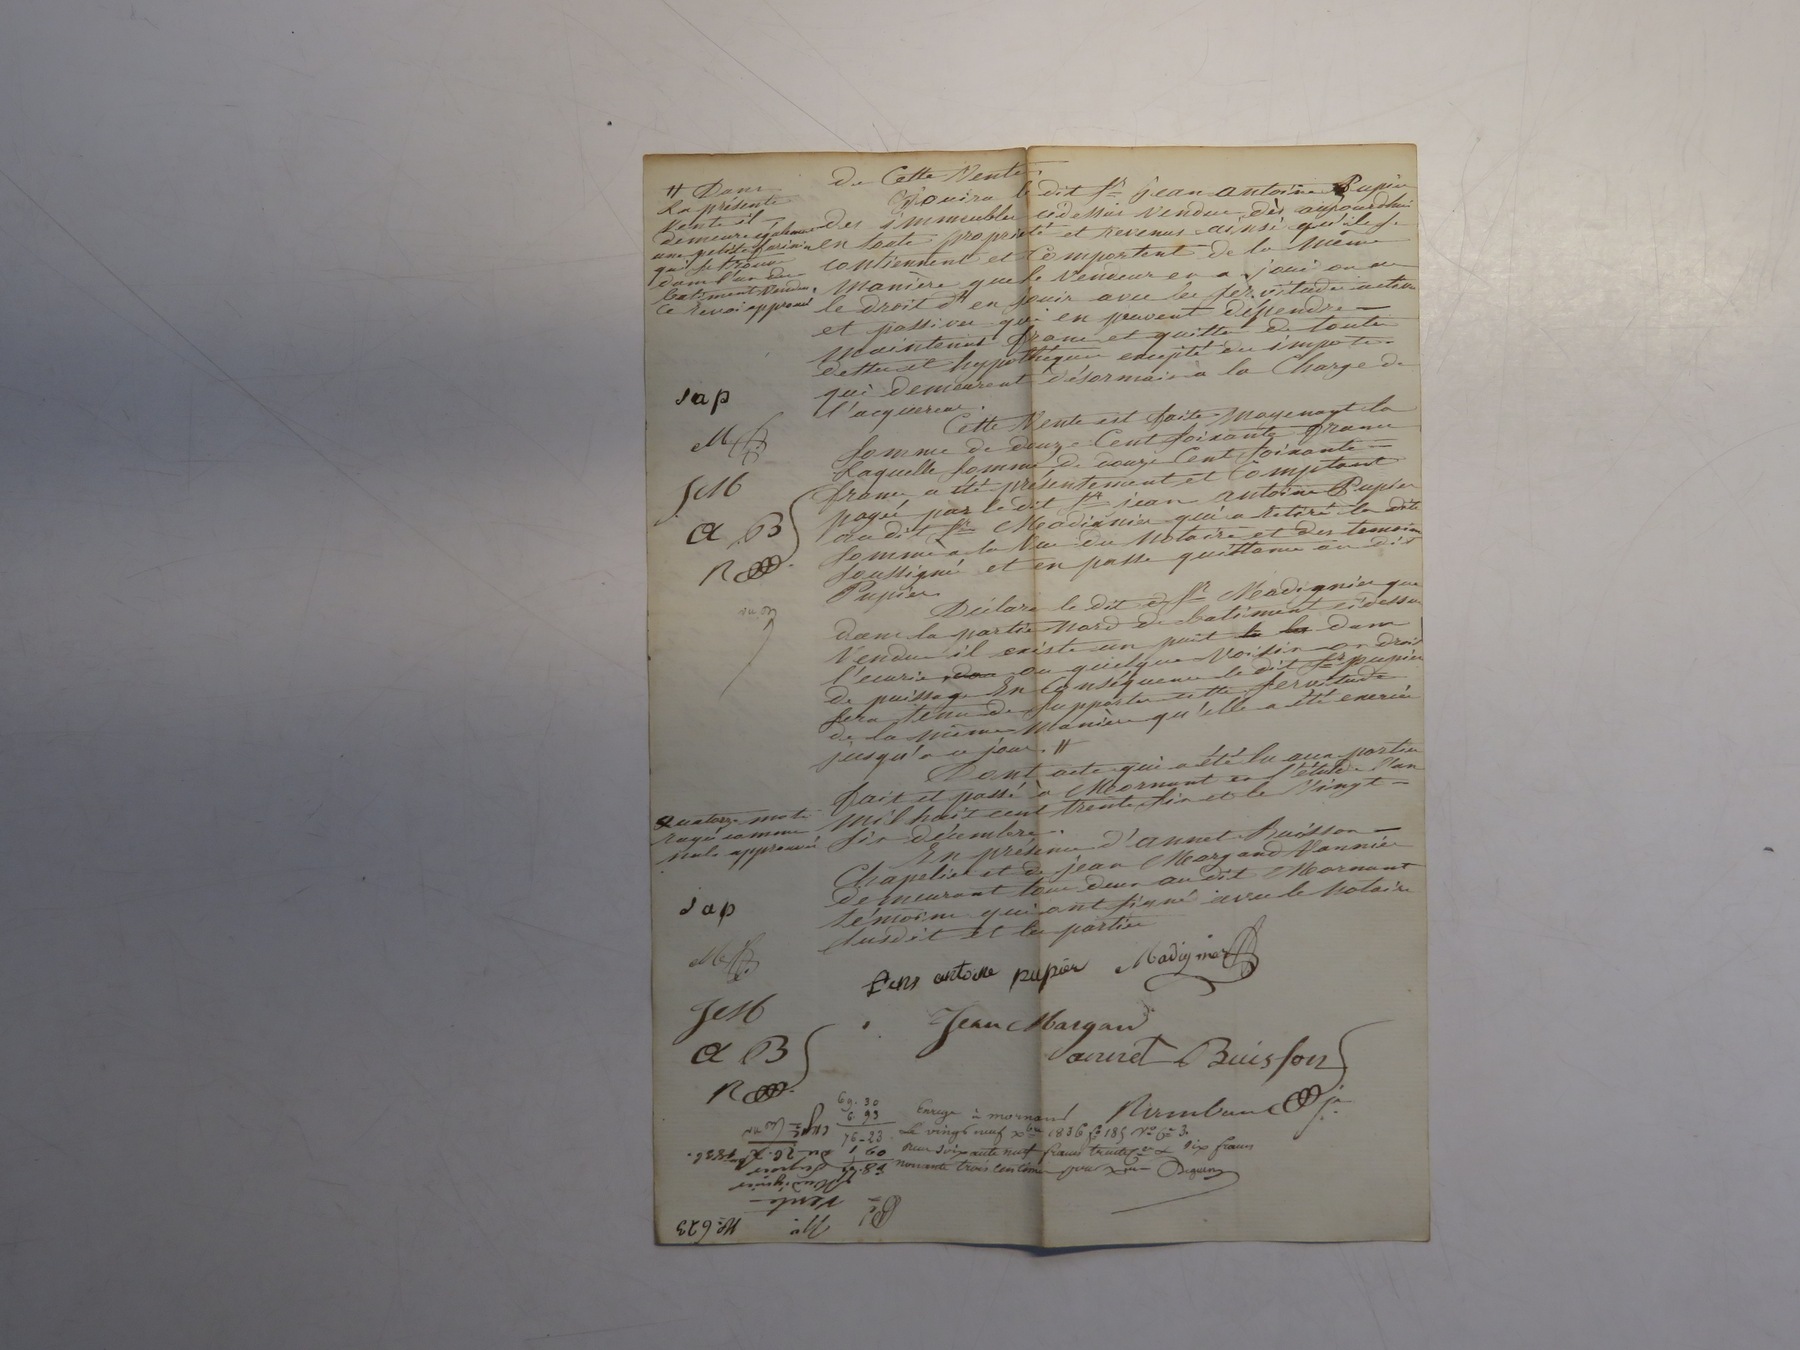 de Cette Vente.
Jouira le dit Sr jean antoine Pupier
des immeubles cidessus vendus dès aujourdhui
en toute propriété et revenus ainsi qu'ils se
contiennent et Comportent de la même
manière que le vendeur en a joui ou eu
le droit d'en jouir avec les servitudes actives
et passives qui en peuvent dépendre —
maintenus franc et quitte de toutes
dettes et hypothèques excepté des impots
qui demeurent désormais a la Charge de
l'acquereur.
Cette Vente est faite Moyenant la
somme de douze Cent soixante francs
Laquelle somme de douze Cent soixante
francs a été présentement et Comptant
payée par le dit Sr jean antoine Pupier
au dit Sr Madignier qui a retiré la dite
somme a la Vue du Notaire et des temoins
soussignés et en passe quittance au dit
Pupier.
Déclare le dit Sr Madignier que
dans la partie Nord du batiment cidessus
Vendu il existe un puit dans
l'ecurie ou quelques Voisins on droit
de puissage En Conséquence le dit Sr pupier
sera tenu de supporter cette servitude
de la même Manière qu'elle a été exercée
jusqu'a ce jour. #
Dont acte qui a été lu aux parties
fait et passé à Mornant en l'étude l'an
mil huit cent trente six et le Vingt —
six décembre.
En présence d'annet Buisson —
Chapelier et de jean Margand Vannier
demeurant tous deux au dit Mornant
témoins qui ont signé avec le Notaire
susdit et les parties
# Dans
La présente
Vente il
demeure
une petite
qui se trouve
dans l'un des
batiments Vendus.
Ce renvoi approuvé
Jap
M
JM
A B
R
Quatorze mots
rayés comme
nuls approuvés
Jap
M
JM
A B
R
Jens antoine pupier Madignier
Jean Margand
annet Buisson
69. 30
6. 93
76 - 23
Enregé à mornant
Le vingt neuf Xbre 1836 fo 185 Vo Ce 3.
reçu soixante neuf francs trente Ces & six francs
nonante trois centimes pour Xme
Du 26. Xbre 1836.
Madignier
Pupier
Vente
No 623